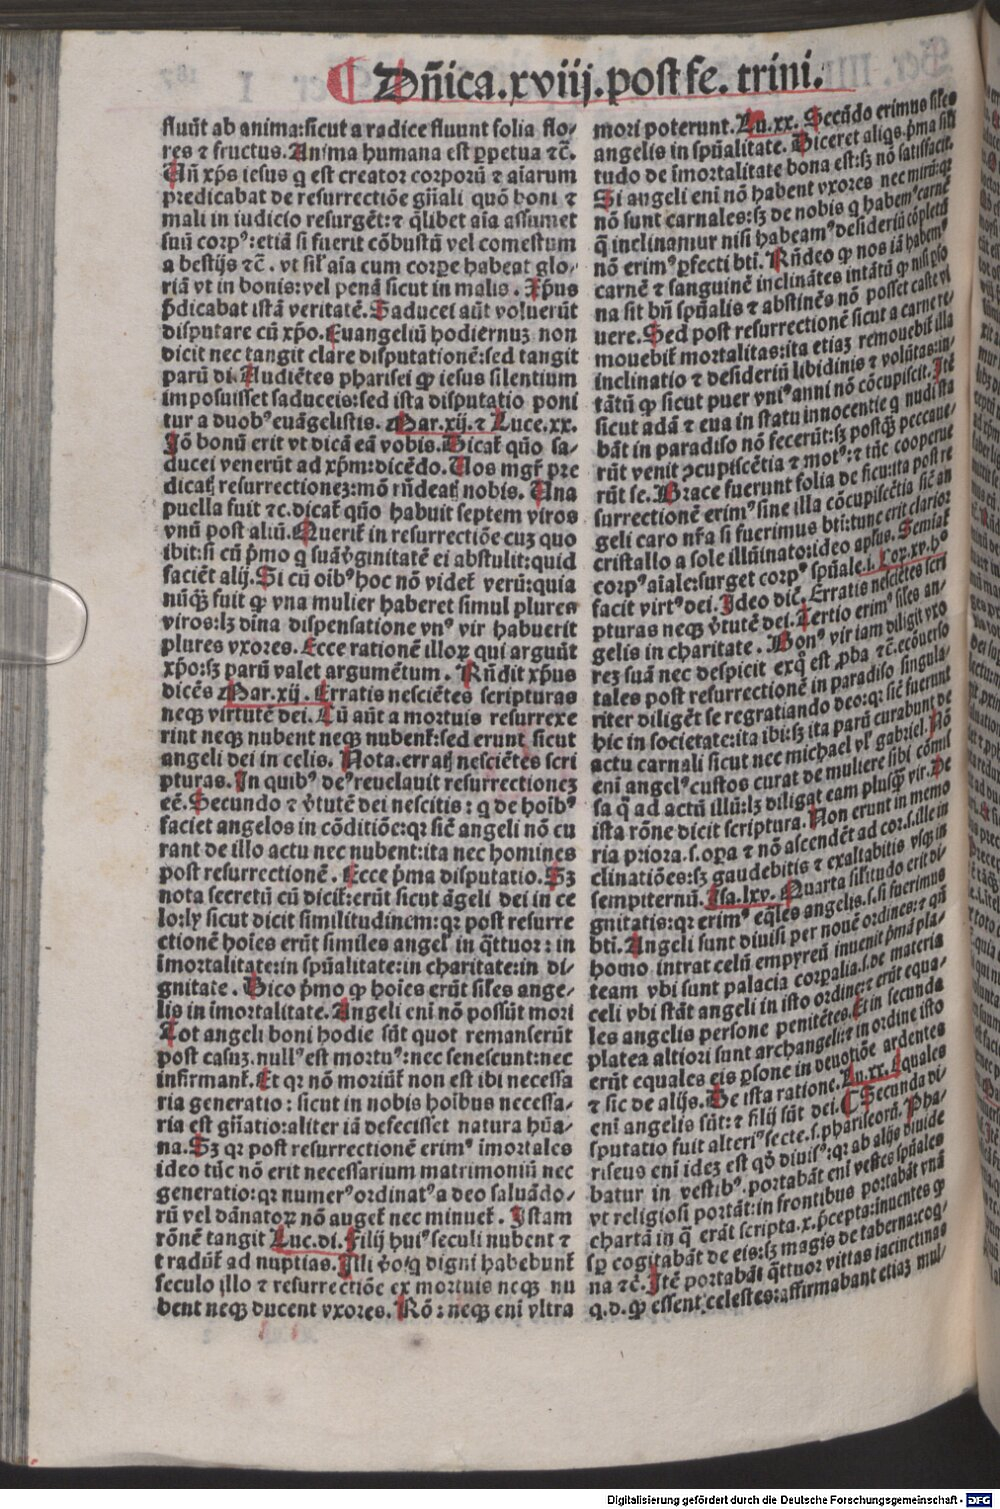 ¶ Dn̄ica.xviij.post fe. trini.
fluūt ab anima:sicut a radice fluunt folia flo⸗
res ⁊ fructus. Anima humana est ꝑpetua ⁊c̄.
Un̄ xp̄s iesus q est creator corporū ⁊ aīarum
predicabat de resurrectiōe gn̄ali quō boni ⁊
mali in iudicio resurgēt:⁊ q̄libet aīa assumet
suū corpꝰ:etiā si fuerit cōbustū vel comestum
a bestijs ⁊c̄. vt sil' aīa cum corꝑe habeat glo⸗
riā vt in bonis:vel penā sicut in malis. Xp̄us
p̄dicabat istā veritatē. Saducei aūt voluerūt
disputare cū xp̄o. Euangeliū hodiernuꝫ non
dicit nec tangit clare disputationē:sed tangit
parū di. Audiētes pharisei ꝙ iesus silentium
imposuisset saduceis:sed ista disputatio poni
tur a duobꝰ euāgelistis. Mar.xij. ⁊ Luce.xx.
Iō bonū erit vt dicā eā vobis. Dicaꝶ quō sa⸗
ducei venerūt ad xp̄m:dicēdo. Uos mgr̄ pre
dicatꝭ resurrectioneꝫ:mō rn̄deatꝭ nobis. Una
puella fuit ⁊c.dicaꝶ quō habuit septem viros
vnū post aliū. Queriꝶ in resurrectiōe cuꝫ quo
ibit:si cū p̄mo q suā v̓ginitatē ei abstulit:quid
faciēt alij. Si cū oibꝰ hoc nō videꝶ verū:quia
nūꝙ̄ fuit ꝙ vna mulier haberet simul plures
viros:lꝫ diīna dispensatione vnꝰ vir habuerit
plures vxores. Ecce rationē illoꝝ qui arguūt
xp̄o:sꝫ parū valet argumētum. Rn̄dit xp̄us
dicēs Mar.xij. Erratis nesciētes scripturas
neqꝫ virtutē dei. Cū aūt a mortuis resurrexe
rint neqꝫ nubent neqꝫ nubenꝶ:sed erunt sicut
angeli dei in celis. Nota.erratꝭ nesciētes scri
pturas. In quibꝰ deꝰ reuelauit resurrectioneꝫ
eē. Secundo ⁊ v̓tutē dei nescitis: q de hoībꝰ
faciet angelos in cōditiōe:qꝛ sic̄ angeli nō cu
rant de illo actu nec nubent:ita nec homines
post resurrectionē. Ecce p̄ma disputatio. Sꝫ
nota secretū cū diciꝶ:erūt sicut āgeli dei in ce
lo:ly sicut dicit similitudinem:qꝛ post resurre
ctionē hoīes erūt similes angel' in q̄ttuor: in
īmortalitate:in spūalitate:in charitate:in di⸗
gnitate. Dico p̄mo ꝙ hoīes erūt siles ange⸗
lis in īmortalitate. Angeli eni nō possūt mori
Tot angeli boni hodie sūt quot remanserūt
post casuꝫ.nullꝰ est mortuꝰ:nec senescunt:nec
infirmanꝶ. Et qꝛ nō moriūꝶ non est ibi necessa
ria generatio: sicut in nobis hoībus necessa⸗
ria est gn̄atio:aliter iā defecisset natura hūa⸗
na. Sꝫ qꝛ post resurrectionē erimꝰ īmortales
ideo tūc nō erit necessarium matrimoniū nec
generatio:qꝛ numerꝰ ordinatꝰ a deo saluādo⸗
rū vel dānatoꝝ nō augeꝶ nec minueꝶ. Istam
rōnē tangit Luc.di. Filij huiꝰ seculi nubent ⁊
tradūꝶ ad nuptias. Illi v̓o q digni habebunꝶ
seculo illo ⁊ resurrectiōe ex mortuis neqꝫ nu
bent neqꝫ ducent vxores. Rō: neqꝫ eni vltra
mori poterunt. Lu.xx. Secūdo erimus siles
angelis in spūalitate. Diceret aliqs.p̄ma sili
tudo de īmortalitate bona est:sꝫ nō satisfacit.
Si angeli eni nō habent vxores nec mirū:qꝛ
nō sunt carnales:sꝫ de nobis q habemꝰ carnē
q̄ inclinamur nisi habeamꝰ desideriū cōpletū
nō erimꝰ ꝑfecti bti. Rn̄deo ꝙ nos iā habemꝰ
carnē ⁊ sanguinē inclinātes intātū ꝙ nisi ꝑso
na sit bn̄ spūalis ⁊ abstinēs nō posset caste vi
uere. Sed post resurrectionē sicut a carne re⸗
mouebiꝶ mortalitas:ita etiaꝫ remouebiꝶ illa
inclinatio ⁊ desideriū libidinis ⁊ volūtas:in⸗
tātū ꝙ sicut puer vniꝰ anni nō cōcupiscit. Itē
sicut adā ⁊ eua in statu innocentie q nudi sta
bāt in paradiso nō fecerūt:sꝫ postꝙ̄ peccaue⸗
rūt venit ꝯcupiscētia ⁊ motꝰ:⁊ tūc cooperue
rūt se. Brace fuerunt folia de ficu:ita post re
surrectionē erimꝰ sine illa cōcupiscētia sic̄ an
geli caro nr̄a si fuerimus bti:tunc erit clarior
cristallo a sole illūinato:ideo apl'us. Seminaꝶ
corpꝰ aīale:surget corpꝰ spūale.i. Cor.xv. hꝰ
facit virtꝰ dei. Ideo dic̄. Erratis nesciētes scri
pturas neqꝫ v̓tutē dei. Tertio erimꝰ siles an⸗
gelis in charitate. Bonꝰ vir iam diligit vxo
reꝫ suā nec despicit exq̊ est ꝓba ⁊c̄. ecōuerso
tales post resurrectionē in paradiso singula⸗
riter diligēt se regratiando deo:qꝛ sic̄ fuerunt
hic in societate:ita ibi:sꝫ ita parū curabunt de
actu carnali sicut nec michael vl' gabriel. Nō
eni angelꝰ custos curat de muliere sibi cōmis
sa q̄ ad actū illū:lꝫ diligat eam plusꝙ̄ vir. De
ista rōne dicit scriptura. Non erunt in memo
ria priora.s.oꝑa ⁊ nō ascendēt ad cor.s.ille in
clinatiōes:sꝫ gaudebitis ⁊ exaltabitis vsqꝫ in
sempiternū. Isa.lxv. Quarta sil'itudo erit di⸗
gnitatis:qꝛ erimꝰ eq̄les angelis.s.si fuerimus
bti. Angeli sunt diuisi per nouē ordines:⁊ qn̄
homo intrat celū empyreū inuenit p̄mā pla⸗
team vbi sunt palacia corꝑalia.s.de materia
celi vbi stāt angeli in isto ordine:⁊ erūt equa⸗
les angelis persone penitētes. Et in secunda
platea altiori sunt archangeli:⁊ in ordine isto
erūt equales eis ꝑsone in deuotiōe ardentes
⁊ sic de alijs. De ista ratione. Lu.xx. Equales
eni angelis sūt: ⁊ filij sūt dei. ¶ Secunda di⸗
sputatio fuit alteriꝰ secte.s.phariseorū. Pha⸗
riseus eni ideꝫ est qd̓ diuisꝰ:qꝛ ab alijs diuide
batur in vestibꝰ.portabāt eni vestes spūales
vt religiosi portāt:in frontibus portabāt vnā
chartā in q̄ erāt scripta.x.p̄cepta:inuentes ꝙ
sꝑ cogitabāt de eis:sꝫ magis de taberna:coq⸗
na ⁊c̄. Itē portabāt q̄ttuor vittas iacinctinas
q.d. ꝙ essent celestes:affirmabant etiaꝫ mul⸗
Digitalisierung gefördert durch die Deutsche Forschungsgemeinschaft - DFG